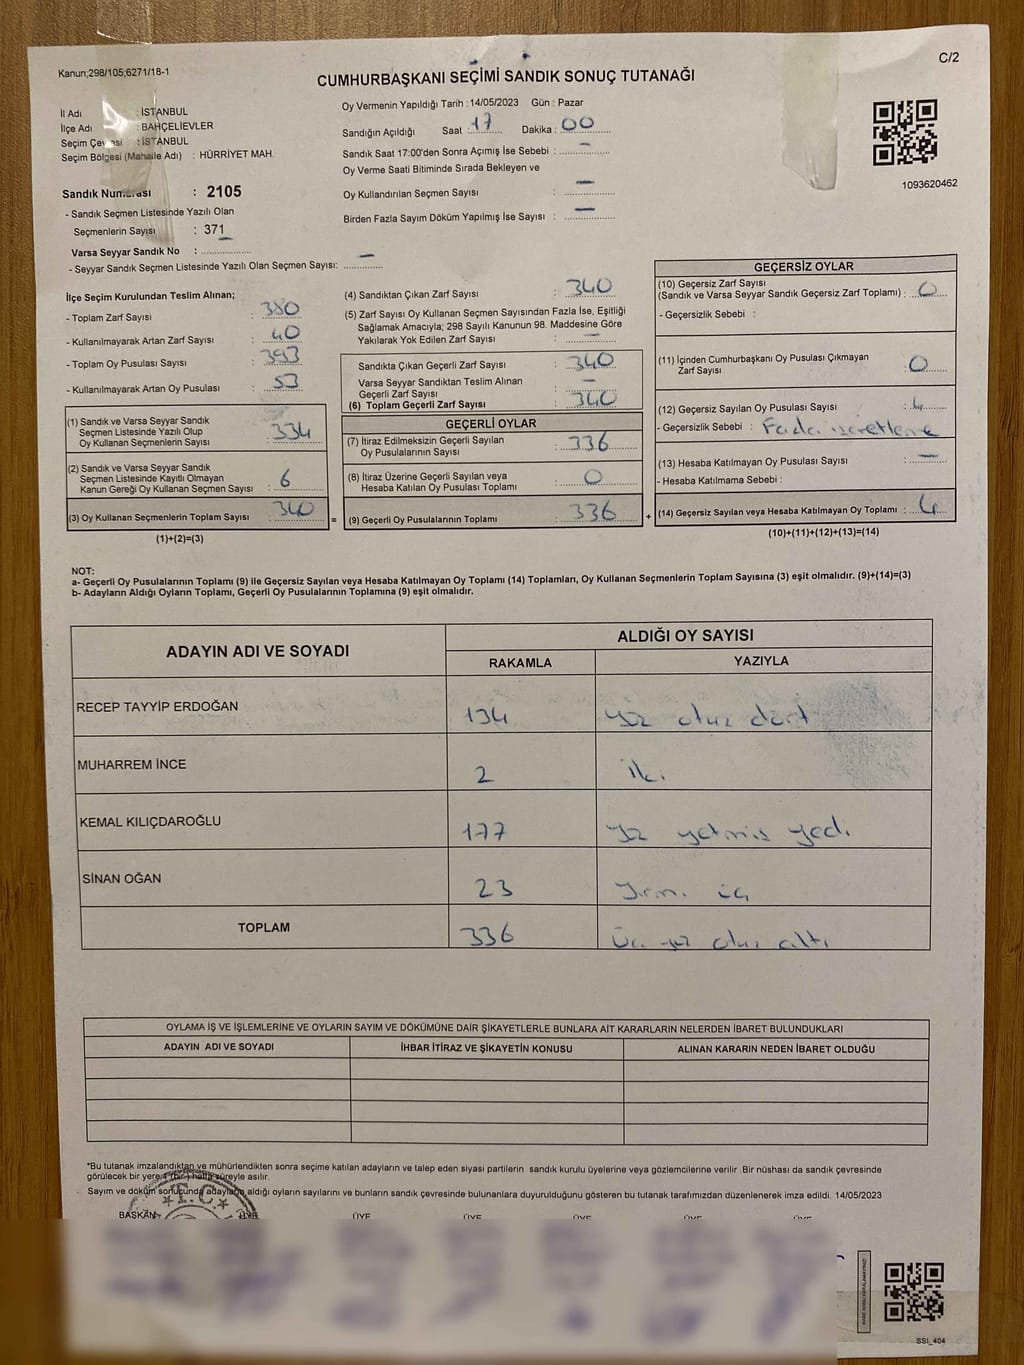 Kanun;298/105;6271/18-1
C/2
CUMHURBAŞKANI SEÇİMİ SANDIK SONUÇ TUTANAĞI
İl Adı : İSTANBUL
İlçe Adı : BAHÇELİEVLER
Seçim Çevresi : İSTANBUL
Seçim Bölgesi (Mahalle Adı) : HÜRRİYET MAH.
Sandık Numarası : 2105
- Sandık Seçmen Listesinde Yazılı Olan
Seçmenlerin Sayısı : 371
Varsa Seyyar Sandık No : –
- Seyyar Sandık Seçmen Listesinde Yazılı Olan Seçmen Sayısı:
Oy Vermenin Yapıldığı Tarih : 14/05/2023 Gün : Pazar
Sandığın Açıldığı Saat : 17 Dakika : 00
Sandık Saat 17:00'den Sonra Açımış İse Sebebi : –
Oy Verme Saati Bitiminde Sırada Bekleyen ve
Oy Kullandırılan Seçmen Sayısı : –
Birden Fazla Sayım Döküm Yapılmış İse Sayısı : –
1093620462
İlçe Seçim Kurulundan Teslim Alınan;
- Toplam Zarf Sayısı : 380
- Kullanılmayarak Artan Zarf Sayısı : 40
- Toplam Oy Pusulası Sayısı : 393
- Kullanılmayarak Artan Oy Pusulası : 53
(1) Sandık ve Varsa Seyyar Sandık
Seçmen Listesinde Yazılı Olup
Oy Kullanan Seçmenlerin Sayısı : 334
(2) Sandık ve Varsa Seyyar Sandık
Seçmen Listesinde Kayıtlı Olmayan
Kanun Gereği Oy Kullanan Seçmen Sayısı : 6
(3) Oy Kullanan Seçmenlerin Toplam Sayısı : 340
(1)+(2)=(3)
(4) Sandıktan Çıkan Zarf Sayısı : 340
(5) Zarf Sayısı Oy Kullanan Seçmen Sayısından Fazla İse, Eşitliği
Sağlamak Amacıyla; 298 Sayılı Kanunun 98. Maddesine Göre
Yakılarak Yok Edilen Zarf Sayısı : –
Sandıkta Çıkan Geçerli Zarf Sayısı : 340
Varsa Seyyar Sandıktan Teslim Alınan
Geçerli Zarf Sayısı : –
(6) Toplam Geçerli Zarf Sayısı : 340
GEÇERLİ OYLAR
(7) İtiraz Edilmeksizin Geçerli Sayılan
Oy Pusulalarının Sayısı : 336
(8) İtiraz Üzerine Geçerli Sayılan veya
Hesaba Katılan Oy Pusulası Toplamı : 0
= (9) Geçerli Oy Pusulalarının Toplamı : 336
GEÇERSİZ OYLAR
(10) Geçersiz Zarf Sayısı
(Sandık ve Varsa Seyyar Sandık Geçersiz Zarf Toplamı) : 0
- Geçersizlik Sebebi :
(11) İçinden Cumhurbaşkanı Oy Pusulası Çıkmayan
Zarf Sayısı : 0
(12) Geçersiz Sayılan Oy Pusulası Sayısı : 4
- Geçersizlik Sebebi : işaretleme
(13) Hesaba Katılmayan Oy Pusulası Sayısı : –
- Hesaba Katılmama Sebebi :
+ (14) Geçersiz Sayılan veya Hesaba Katılmayan Oy Toplamı : 4
(10)+(11)+(12)+(13)=(14)
NOT:
a- Geçerli Oy Pusulalarının Toplamı (9) ile Geçersiz Sayılan veya Hesaba Katılmayan Oy Toplamı (14) Toplamları, Oy Kullanan Seçmenlerin Toplam Sayısına (3) eşit olmalıdır. (9)+(14)=(3)
b- Adayların Aldığı Oyların Toplamı, Geçerli Oy Pusulalarının Toplamına (9) eşit olmalıdır.
ADAYIN ADI VE SOYADI ALDIĞI OY SAYISI
RAKAMLA YAZIYLA
RECEP TAYYİP ERDOĞAN 134 yüz otuz dört
MUHARREM İNCE 2 iki
KEMAL KILIÇDAROĞLU 177 yüz yetmiş yedi
SİNAN OĞAN 23 yirmi üç
TOPLAM 336 üç yüz otuz altı
OYLAMA İŞ VE İŞLEMLERİNE VE OYLARIN SAYIM VE DÖKÜMÜNE DAİR ŞİKAYETLERLE BUNLARA AİT KARARLARIN NELERDEN İBARET BULUNDUKLARI
ADAYIN ADI VE SOYADI İHBAR İTİRAZ VE ŞİKAYETİN KONUSU ALINAN KARARIN NEDEN İBARET OLDUĞU
*Bu tutanak imzalandıktan ve mühürlendikten sonra seçime katılan adayların ve talep eden siyasi partilerin sandık kurulu üyelerine veya gözlemcilerine verilir. Bir nüshası da sandık çevresinde
görülecek bir yere 1 (bir) hafta süreyle asılır.
Sayım ve döküm sonucunda adayların aldığı oyların sayılarını ve bunların sandık çevresinde bulunanlara duyurulduğunu gösteren bu tutanak tarafımızdan düzenlenerek imza edildi. 14/05/2023
T.C.
BAŞKAN ÜYE ÜYE ÜYE ÜYE ÜYE ÜYE
SSI_404